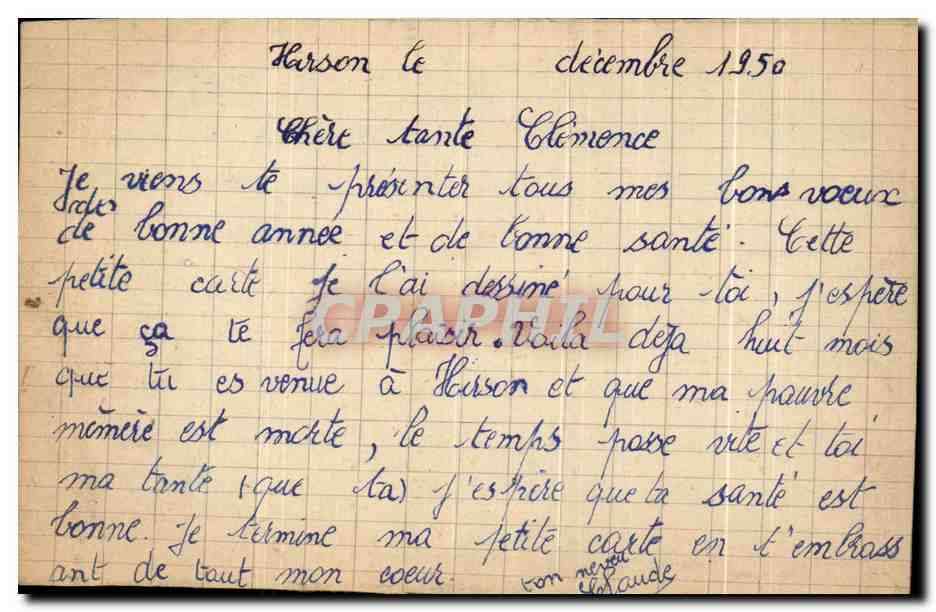 Hirson le décembre 1950
Chère tante Clémence
Je viens te présenter tous mes bons voeux
de bonne année et de bonne santé. Cette
petite carte je l'ai dessiné pour toi, j'espère
que ça te fera plaisir. Voila deja huit mois
que tu es venue à Hirson et que ma pauvre
mémère est morte, le temps passe vite et toi
ma tante (que ta) j'espère que ta santé est
bonne. Je termine ma petite carte en t'embrass
ant de tout mon coeur. ton neveu
Claude
CPAPHIL